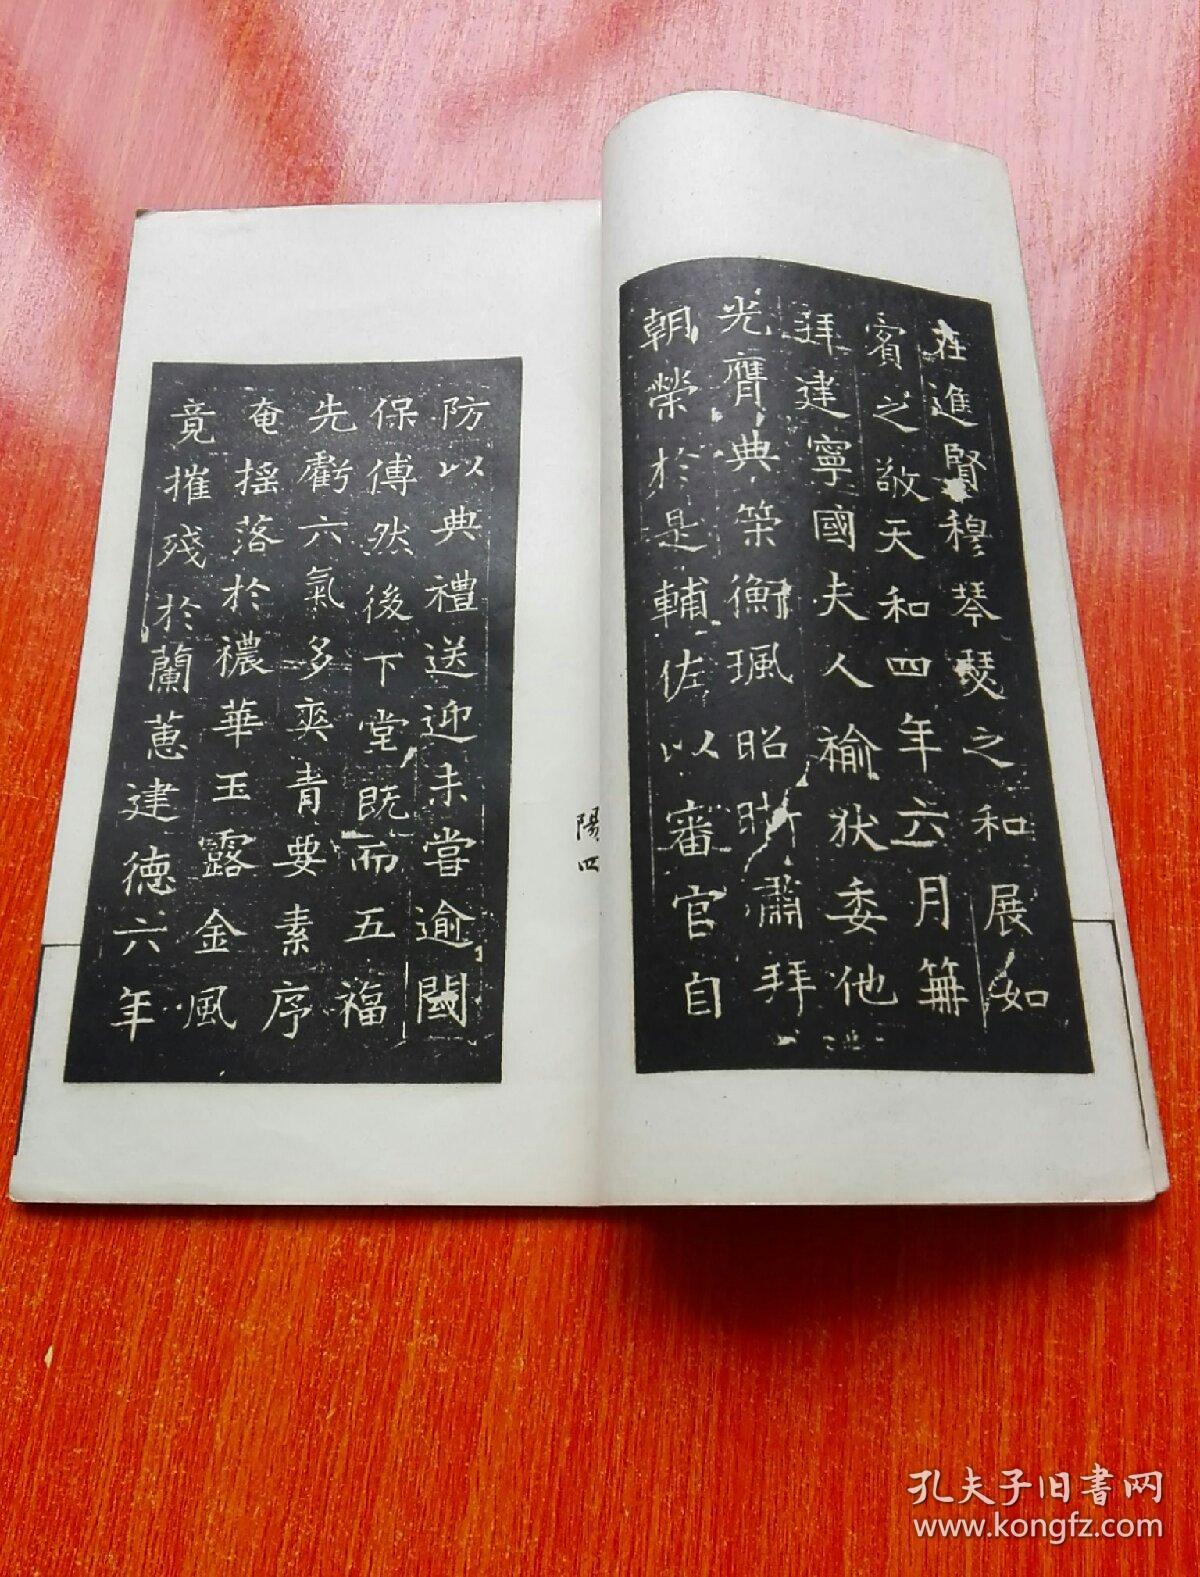 在進賢穆琴瑟之和展如
賓之敬天和四年六月冊
拜建寧國夫人褕狄委他
光膺典策衡珮昭晣蕭拜
朝榮於是輔佐以審官自
防以典禮送迎未嘗逾閾
保傅然後下堂既而五福
先虧六氣多爽青要素序
奄搖落於穠華玉露金風
竟摧殘於蘭蕙建德六年
陽四
孔夫子旧书网
www.kongfz.com